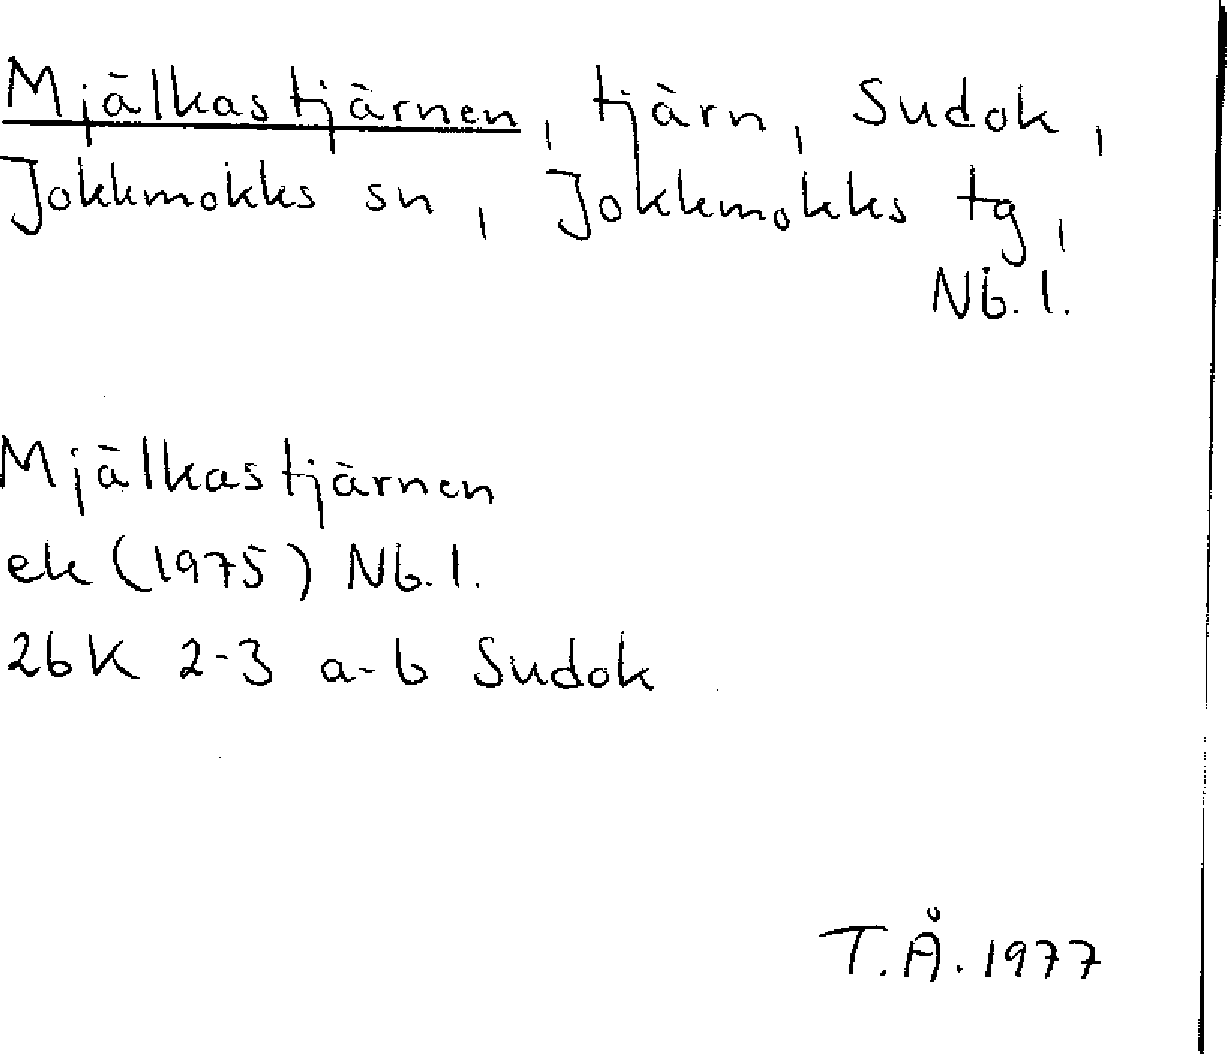 Mjälkastjärnen, tjärn, Sudok,
Jokkmokks sn, Jokkmokks tg,
Nb. l.
Mjälkastjärnen
ek (1975) Nb. l.
26K 2-3 a-b Sudok
T.Å. 1977